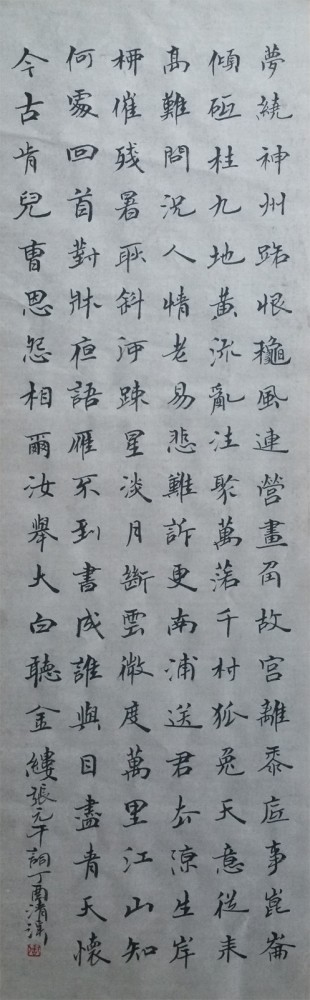 夢繞神州路恨龝風連營畫角故宮離黍底事崑崙
傾砥柱九地黃流亂注聚萬落千村狐兔天意從来
高難問況人情老易悲難訴更南浦送君去涼生岸
柳催殘暑耿斜河疎星淡月斷雲微度萬里江山知
何處回首對牀夜語雁不到書成誰與目盡青天懷
今古肯兒曹恩怨相爾汝舉大白聽金縷
張元干詞丁酉清